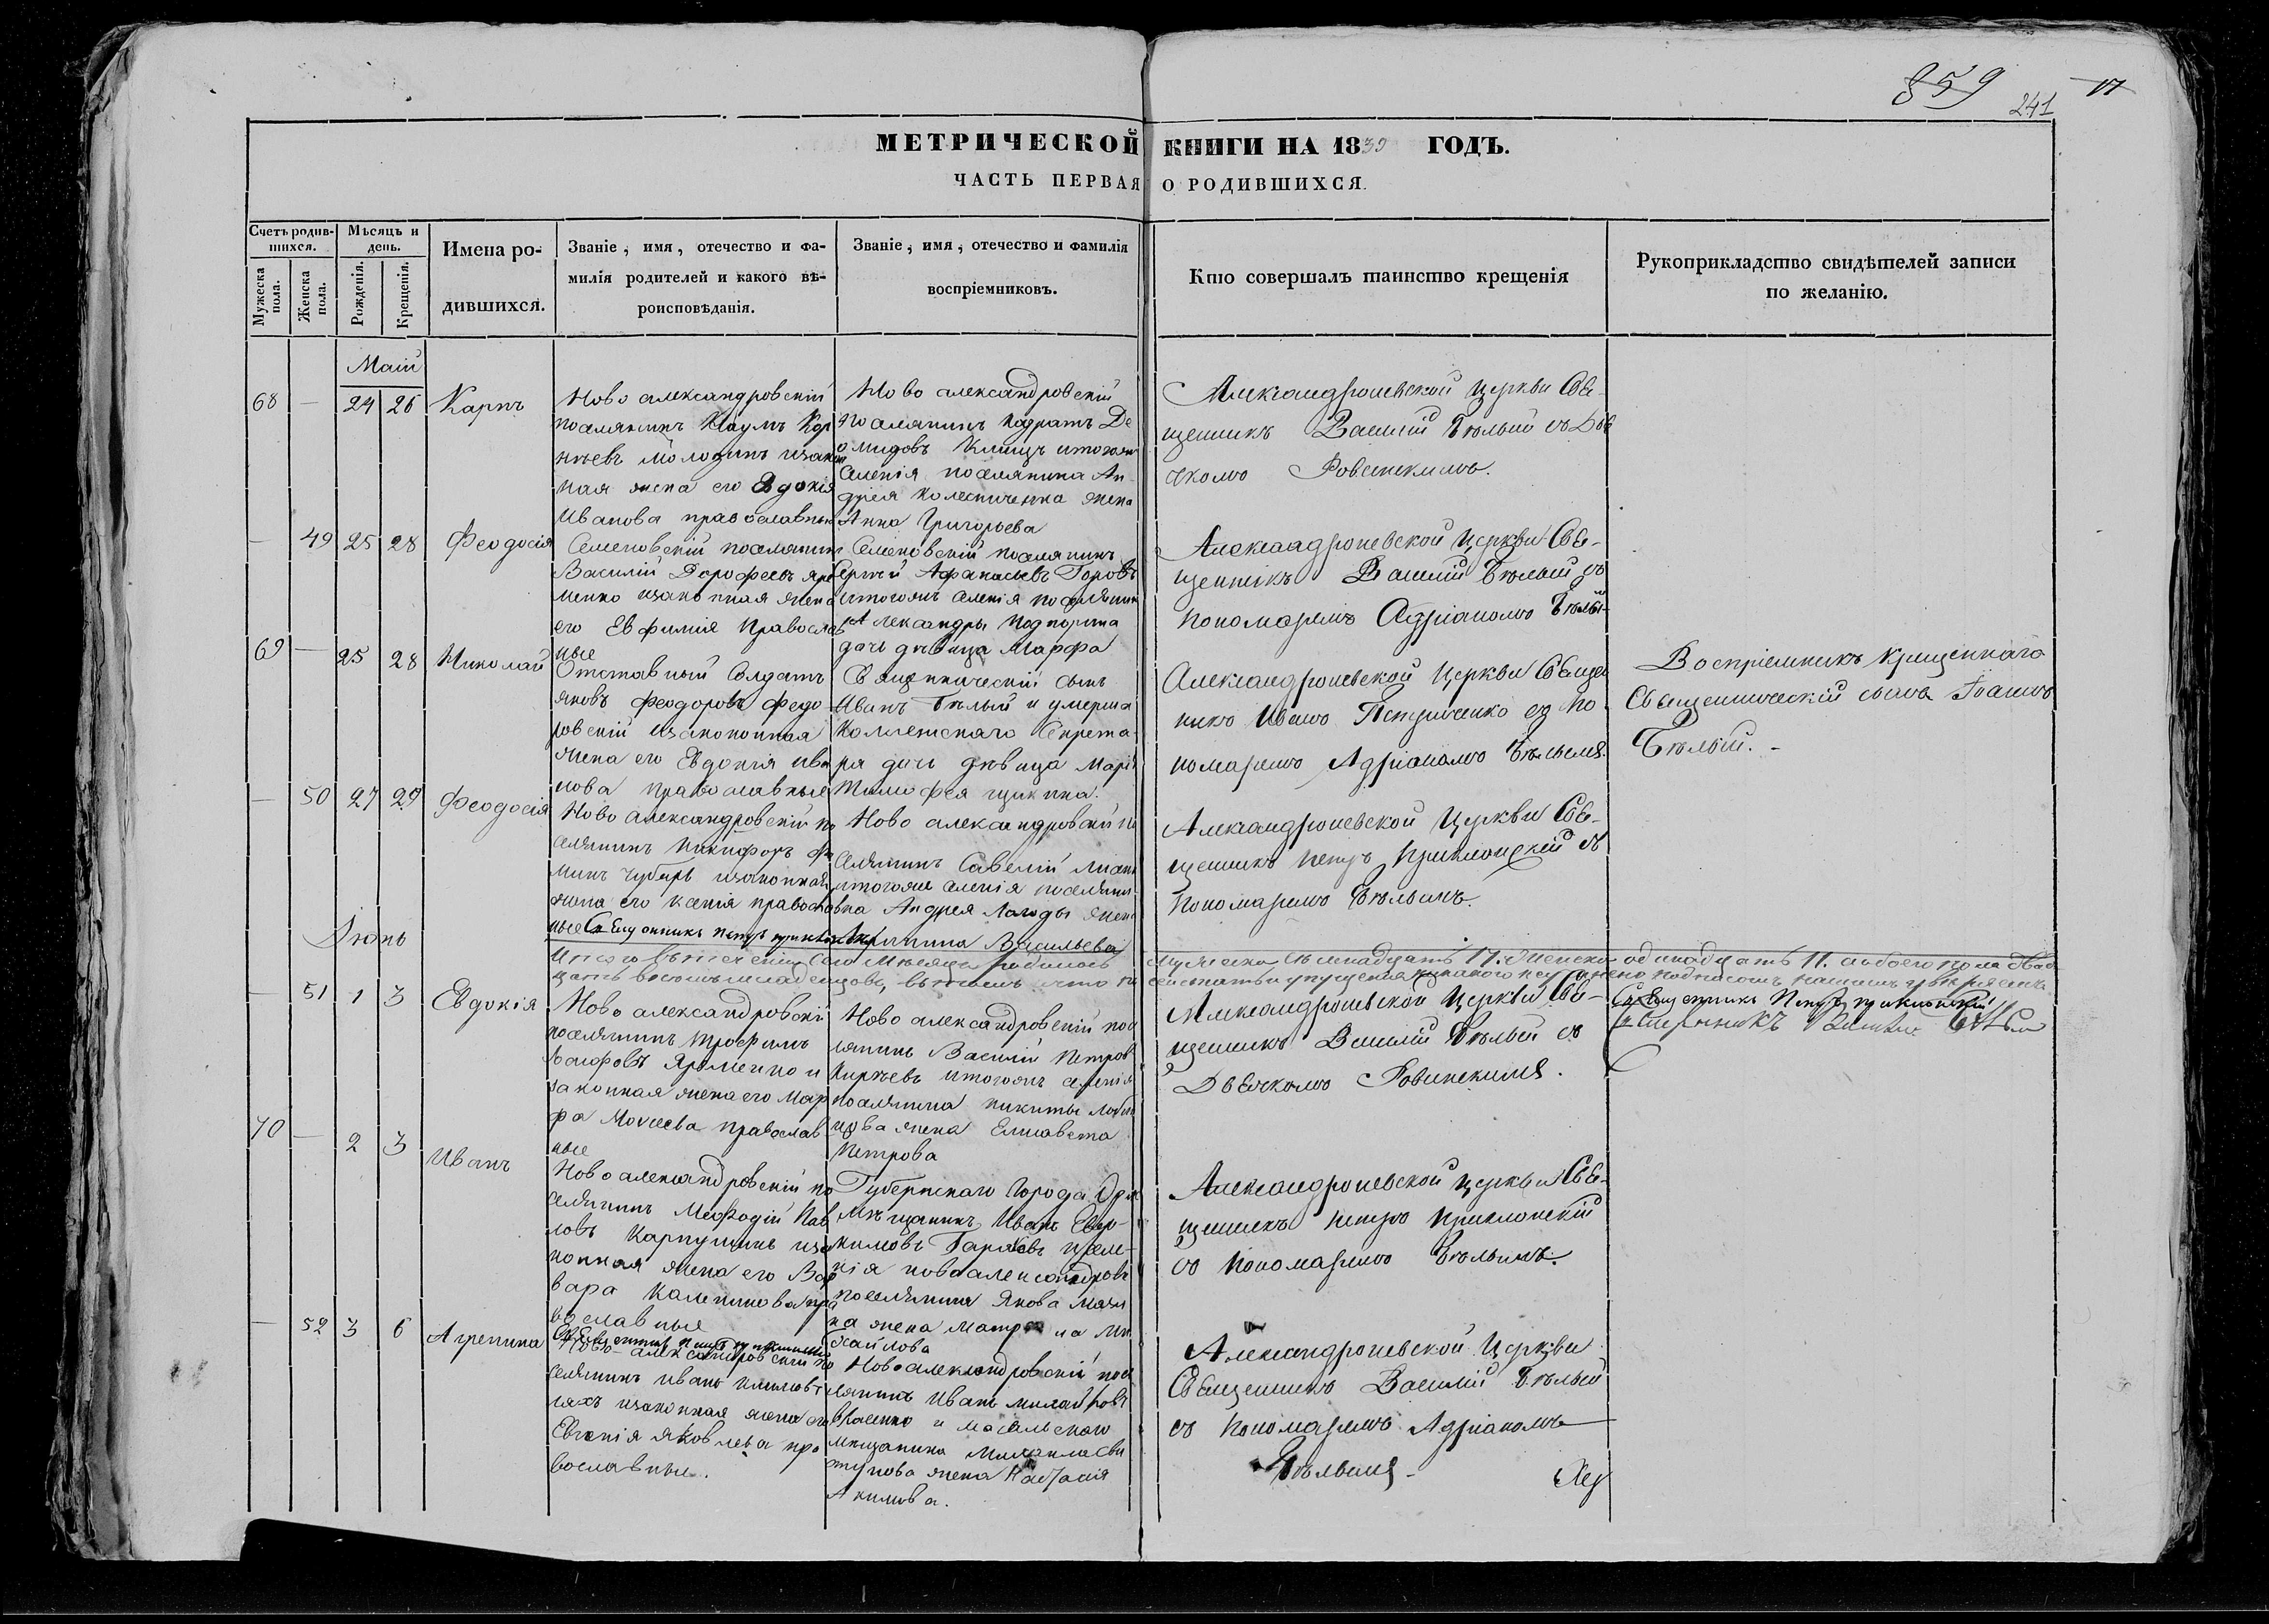 859
241
17
МЕТРИЧЕСКОЙ КНИГИ НА 1839 ГОДЪ.
ЧАСТЬ ПЕРВАЯ О РОДИВШИХСЯ.
Счетъ родив-
шихся.
Мужеска пола.
Женска пола.
Мѣсяцъ и день.
Рожденія.
Крещенія.
Имена ро-
дившихся.
Званіе, имя, отечество и фа-
милія родителей и какого вѣ-
роисповѣданія.
Званіе, имя, отечество и фамилія
воспріемниковъ.
Кто совершалъ таинство крещенія
Рукоприкладство свидѣтелей записи
по желанію.
Маій
68 — 24 26 Карпъ
Ново александровскій
поселянинъ Наумъ Кор
нѣевъ Молодинъ изакон
ная жена его Евдокія
Иванова православные
Ново александровскій
поселянинъ Кодратъ Де
омидовъ Клищъ итогожъ
селенія поселянина Ан
дрея Колесниченка жена
Анна Григорьева
Александроневской Церкви Свя-
щенникъ Василій Бѣлый съ Дья
чкомъ Ровенскимъ.
— 49 25 28 Феодосія
Семеновскій поселянинъ
Василій Дорофеевъ Яре
менко изаконная жена
его Евфимія Православ
ные
Семеновскій поселянинъ
Сергѣй Афанасьевъ Горовъ
итогожъ селенія поселянина
Александры Подпорина
дочь дѣвица Марфа
Александроневской Церкви Свя-
щенникъ Василій Бѣлый съ
пономаремъ Адріаномъ Бѣлы-
69 — 25 28 Николай
Отставный Солдатъ
Яковъ Феодоровъ Федо
ровскій изаконная
жена его Евдокія Ива
нова православные
Священническій сынъ
Иванъ Бѣлый и умерша
Коллежскаго Секрета
ря дочь дѣвица Марія
Тимофея Щикина.
Александроневской Церкви Свяще
никъ Иванъ Петриченко съ по
номаремъ Адріаномъ Бѣлымъ.
Воспріемникъ крещеннаго
Священническій сынъ Іоаннъ
Бѣлый.-
— 50 27 29 Феодосія
Ново Александровскій по
селянинъ Никифоръ Фо
минъ Чубарь изаконная
жена его Ксенія православ
ные Священникъ Петръ Приклонскій
Ново александровскій по
селянинъ Савелій
итогоже селенія поселяни
на Андрея Лагоды жена
Акилина Васильева
Александроневской Церкви Свя-
щенникъ Петръ Приклонскій съ
пономаремъ Бѣлымъ.
Итого втеченіи Сего Мѣсяца родилось мужеска семнадцать 17. женска одинадцать 11. аобоего пола двад
цать восемъ младенцовъ, въ чемъ что
Священникъ Петръ Приклонскій
Священникъ Василій Бѣлый
Іюнь
— 51 1 3 Евдокія
Ново александровскій
поселянинъ Трофимъ
Іосифовъ Яременко и
законная жена его Мар
фа Моисеева православ
ные
Ново александровскій посе
лянинъ Василій Петровъ
Кирѣевъ итогожъ селенія
поселянина Никиты
жена Елисавета
Петрова
Александроневской Церкви Свя-
щенникъ Василій Бѣлый съ
Дьячкомъ Ровинскимъ.
70 — 2 3 Иванъ
Ново александровскій по
селянинъ Мефодій Пав
ловъ Карпушинъ иза
конная жена его Вар
вара Калениковапра
вославные
Священникъ Петръ Приклонскій
Губернскаго Города Орла
мѣщанинъ Иванъ Евдо-
кимовъ исле-
нія новоалександровк
поселянина Якова
на жена Матрона Ми
хайлова
Александроневской Церкви Свя-
щенникъ Петръ Приклонскій
съ пономаремъ Бѣлымъ.
— 52 3 6 Агрепина
Ново-александровскій по
селянинъ Иванъ
ляхъ изаконная жена его
Евгенія Яковлева пра
вославные.
Новоалександровскій посе
лянинъ Иванъ
и масальскаго
мѣщанина
жена Настасія
Акимова.
Александроневской Церкви
Священникъ Василій Бѣлый
съ пономаремъ Адріаномъ
Бѣлымъ-